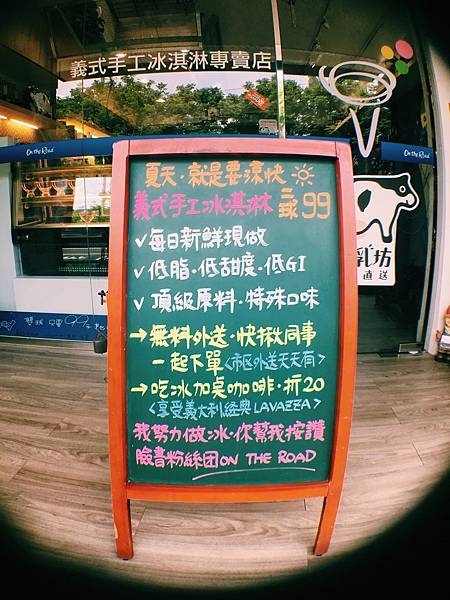 義式手工冰淇淋專賣店
On the Road
On the Road
夏天·就是要涼快
義式手工冰淇淋 三球 99
✓每日新鮮現做
✓低脂·低甜度·低GI
✓頂級原料·特殊口味
→無料外送·快揪同事
一起下單<市區外送天天有>
→吃冰加桌咖啡·折20
<享受義大利經典LAVAZZA>
我努力做冰·你幫我按讚
臉書粉絲団ON THE ROAD
乳坊
直送